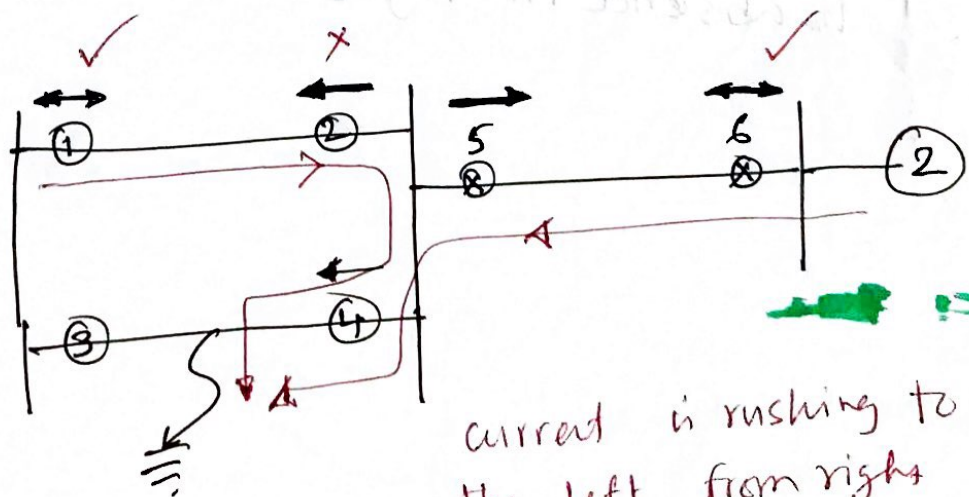 1
2
5
6
2
3
4
current is rushing to
the left from right